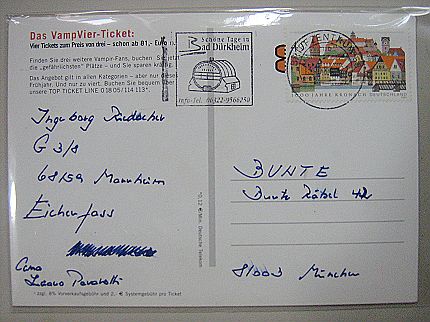 Das VampVier-Ticket:
Vier Tickets zum Preis von drei – schon ab 81,- Euro
Finden Sie drei weitere Vampir-Fans, buchen Sie jetzt
die „gefährlichsten" Plätze – und Sie sparen kräftig.
Das Angebot gilt in allen Kategorien – aber nur dieses
Frühjahr. Und nur zu viert. Wenn Sie bequem bei
unsere TOP TICKET LINE 0 18 05/114 113*.
Schöne Tage in
Bad Dürkheim
Info-Tel. 06322-9566250
BRIEFZENTRUM
1000 JAHRE KRONACH DEUTSCHLAND
Ingeborg
G 3/8
68159 Mannheim
Eichenfass
Luciano Pavarotti
*0,12 € Min. Deutsche Telekom
* zzgl. 8% Vorverkaufsgebühr und 2,- € Systemgebühr pro Ticket
BUNTE
Bunte Rätsel 42
81003 München